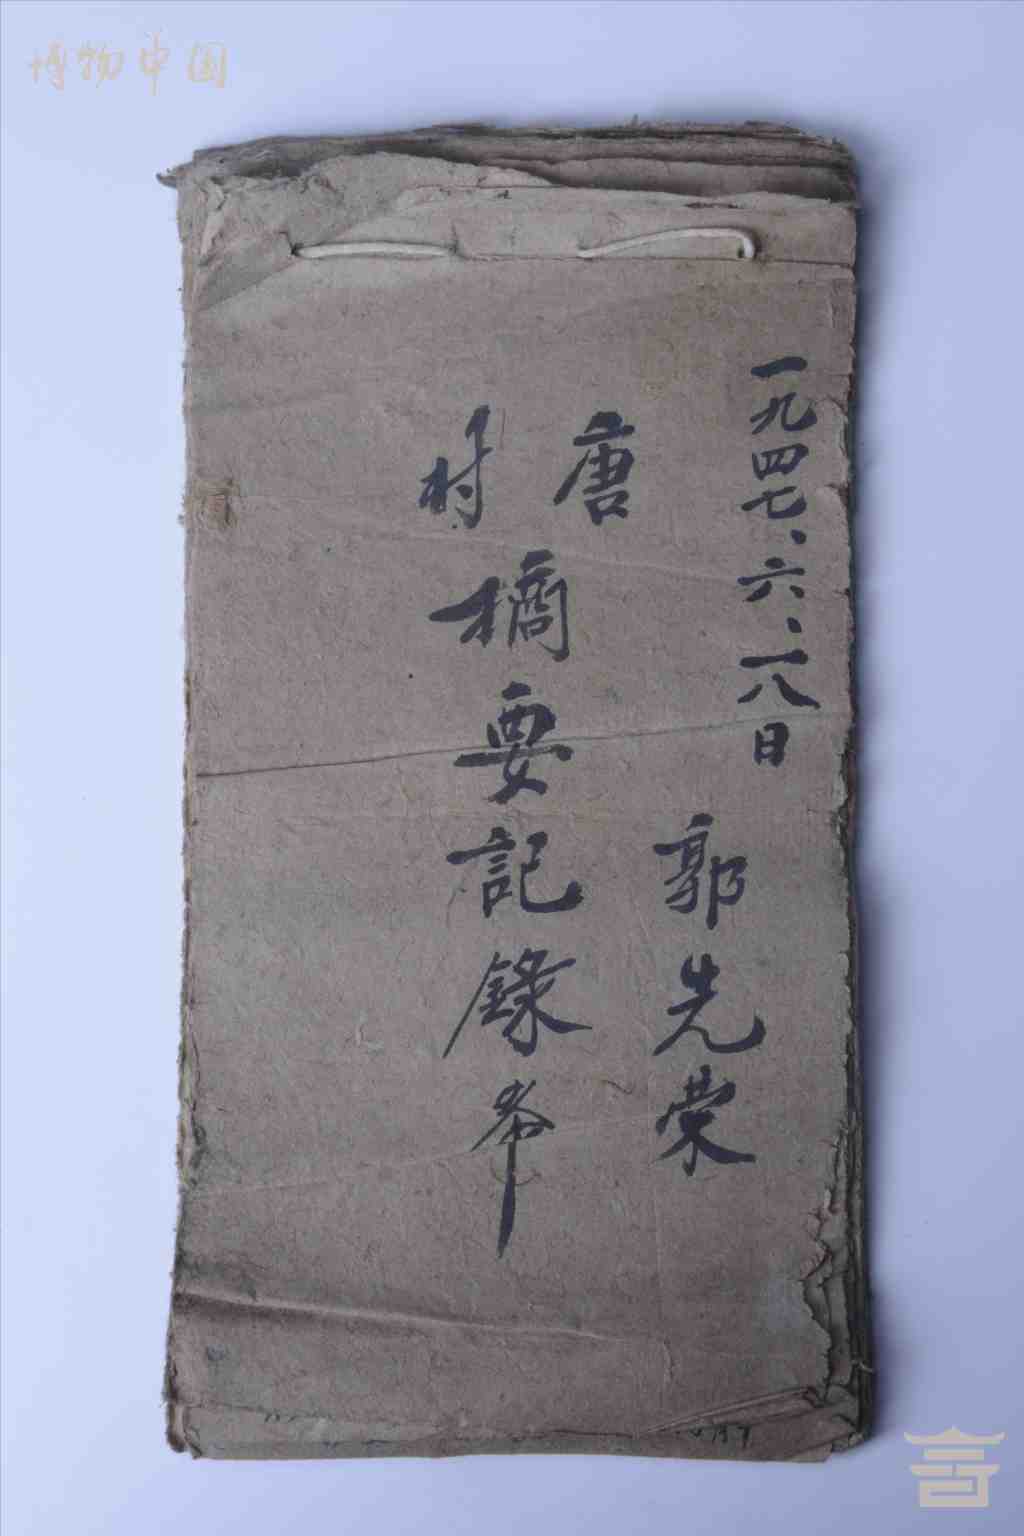 博物中国
一九四七、六、一八日
郭先荣
唐村
摘要記錄